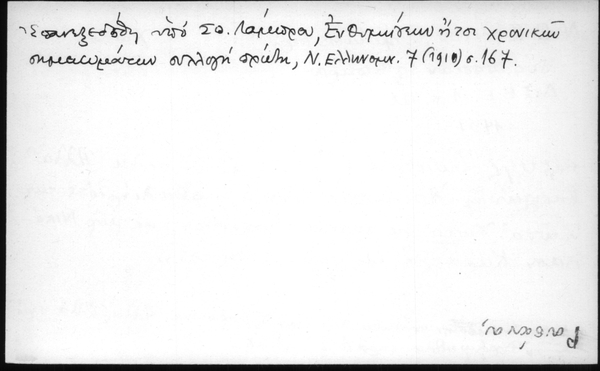 Ἐπανεξεδόθη ὑπό Σπ. Λάμπρου, Ἐνθυμήσεων ἤτοι χρονικῶν
σημειωμάτων συλλογή πρώτη, Ν. Ἑλληνομν. 7 (1910) σ. 167.